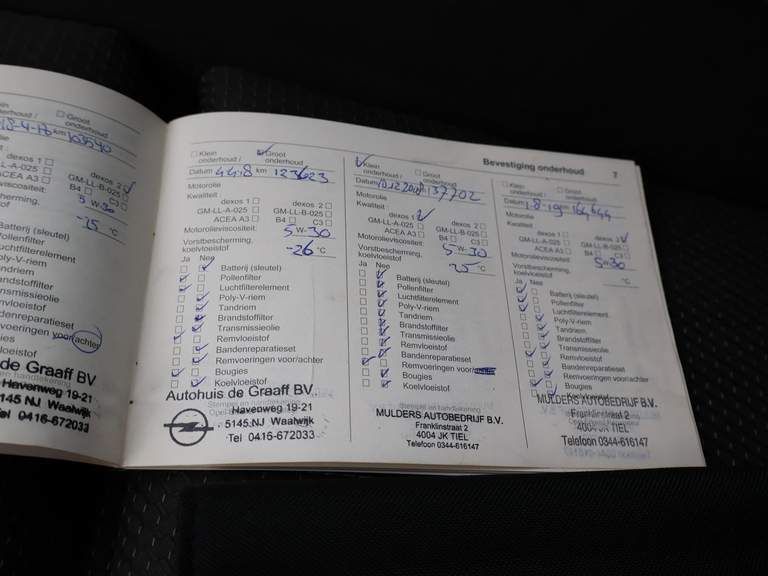 Groot
onderhoud
km 103540
dexos 1
dexos 2
GM-LL-B-025
ACEA A3
B4
C3
5 W-30
Batterij (sleutel)
Pollenfilter
Luchtfilterelement
Tandriem
Remvoeringen voor/achter
de Graaff BV
Havenweg 19-21
5145 NJ Waalwijk
Tel 0416-672033
Klein
onderhoud /
Groot
onderhoud
Datum 4-4-18 km 123623
Motorolie
Kwaliteit
dexos 1
dexos 2
GM-LL-A-025
GM-LL-B-025
ACEA A3
B4
C3
Motorolieviscositeit: 5 W-30
Vorstbescherming,
koelvloeistof -26 °C
Ja Nee
Batterij (sleutel)
Pollenfilter
Luchtfilterelement
Poly-V-riem
Tandriem
Brandstoffilter
Transmissieolie
Remvloeistof
Bandenreparatieset
Remvoeringen voor/achter
Bougies
Koelvloeistof
Autohuis de Graaff BV
Havenweg 19-21
5145 NJ Waalwijk
Tel 0416-672033
Bevestiging onderhoud 7
Klein
onderhoud /
Groot
onderhoud
Datum 10.12.2018 137702
Motorolie
Kwaliteit
dexos 1
dexos 2
GM-LL-A-025
GM-LL-B-025
ACEA A3
B4
C3
Motorolieviscositeit: 5 W-30
Vorstbescherming,
koelvloeistof °C
Ja Nee
Batterij (sleutel)
Pollenfilter
Luchtfilterelement
Poly-V-riem
Tandriem
Brandstoffilter
Transmissieolie
Remvloeistof
Bandenreparatieset
Remvoeringen voor/
Bougies
Koelvloeistof
MULDERS AUTOBEDRIJF B.V.
Franklinstraat 2
4004 JK TIEL
Telefoon 0344-616147
Klein
onderhoud /
Groot
onderhoud
Datum 1-8-19 km 164644
Motorolie
Kwaliteit
dexos 1
dexos 2
GM-LL-A-025
GM-LL-B-025
ACEA A3
B4
C3
Motorolieviscositeit: 5 W-30
Vorstbescherming,
koelvloeistof °C
Ja Nee
Batterij (sleutel)
Pollenfilter
Luchtfilterelement
Poly-V-riem
Tandriem
Brandstoffilter
Transmissieolie
Remvloeistof
Bandenreparatieset
Remvoeringen voor/achter
Bougies
Koelvloeistof
MULDERS AUTOBEDRIJF B.V.
Franklinstraat 2
4004 JK TIEL
Telefoon 0344-616147